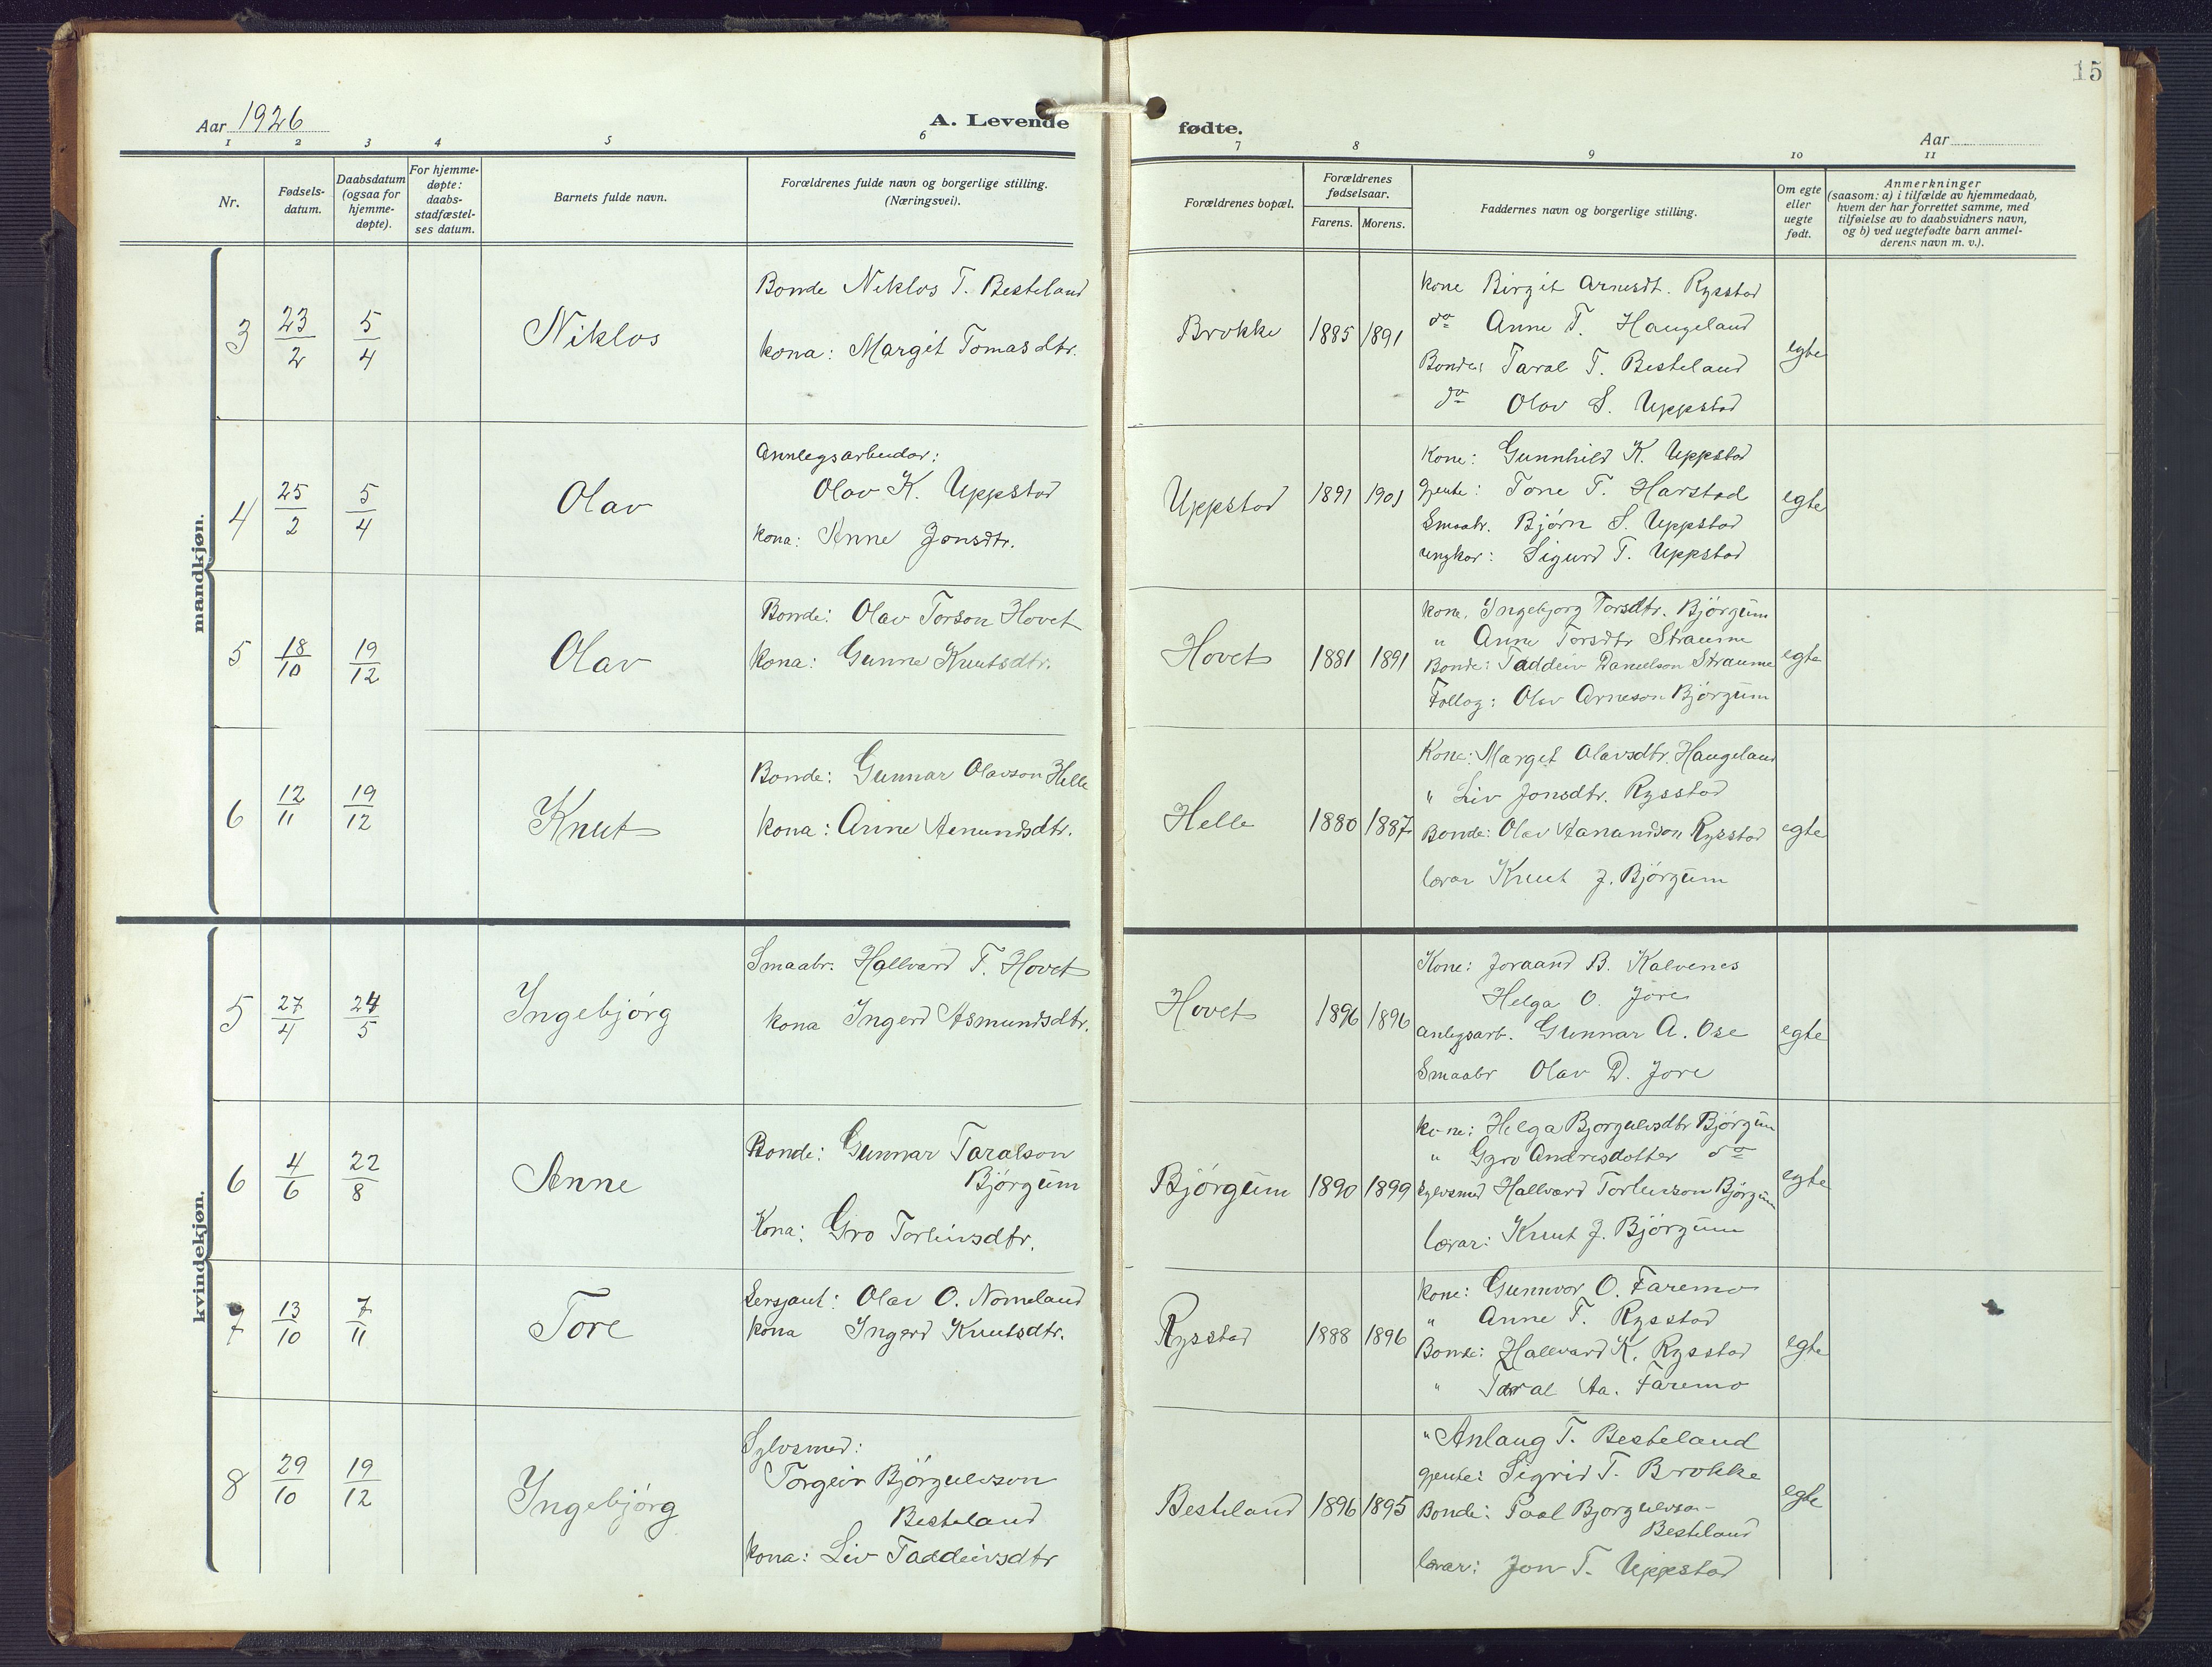 15
Aar 1926
A. Levende
fødte.
Aar
1 2 3 4 5 6 7 8 9 10 11
Nr.
Fødsels-
datum.
Daabsdatum
(ogsaa for
hjemme-
døpte).
For hjemme-
døpte:
daabs-
stadfæstel-
ses datum.
Barnets fulde navn.
Forældrenes fulde navn og borgerlige stilling.
(Næringsvei).
Forældrenes bopæl.
Forældrenes
fødselsaar.
Farens. Morens.
Faddernes navn og borgerlige stilling.
Om egte
eller
uegte
født.
Anmerkninger
(saasom: a) i tilfælde av hjemmedaab,
hvem der har forrettet samme, med
tilføielse av to daabsvidners navn,
og b) ved uegtefødte barn anmel-
derens navn m. v.).
mandkjøn.
3 23/2 5/4 Niklos
Bonde Niklos T. Besteland
kona: Margit Tomasdtr.
Brokke 1885 1891
kone Birgit Arnesdt. Rysstad
do Anne T. Haugeland
Bonde: Taral T. Besteland
do Olav S. Uppstad
egte
4 25/2 5/4 Olav
Annlegsarbeidar:
Olav K. Uppstad
kona: Anne Jonsdtr.
Uppstad 1891 1901
kone: Gunnhild K. Uppstad
Gjente: Tone T. Harstad
Smaabr. Bjørn S. Uppstad
ungkar: Sigurd T. Uppstad
egte
5 18/10 19/12 Olav
Bonde: Olav Torson Hovet
kona: Gunne Knutsdtr.
Hovet 1881 1891
kone. Ingebjorg Torsdtr. Bjørgum
" Anne Torsdtr Straume
Bonde: Taddeiv Danielson Straume
Follog: Olav Arneson Bjørgum
egte
6 12/11 19/12 Knut
Bonde: Gunnar Olavson Helle
kona: Anne Aamundsdtr.
Helle 1880 1887
Kone: Marget Olavsdtr. Haugeland
" Liv Jonsdtr. Rysstad
Bonde: Olav Aanundson Rysstad
lærar Knut J. Bjørgum
egte
kvindekjøn.
5 27/4 24/5 Ingebjørg
Smaabr. Hallvard T. Hovet
kona Ingerd Asmundsdtr.
Hovet 1896 1896
Kone: Joraand B. Kalvenes
Helga O. Jore
Anlegsarb. Gunnar A. Ose
Smaabr Olav D. Jore
egte
6 4/6 22/8 Anne
Bonde: Gunnar Taralson
Bjørgum
Kona: Gro Torleivsdtr.
Bjørgum 1890 1899
kone: Helga Bjorgulvsdtr Bjørgum
" Gyro Andresdotter do
Sylvsmed Hallvard Torleivson Bjørgum
lærar: Knut J. Bjørgum
egte
7 13/10 7/11 Tore
Sersjant: Olav O. Nomeland
kona Ingerd Knutsdtr.
Rysstad 1888 1896
kone: Gunnvor O. Faremo
" Anne T. Rysstad
Bonde: Hallvard K. Rysstad
" Taral Aa. Faremo
egte
8 29/10 19/12 Ingebjørg
Sylvsmed:
Torgeir Bjørgulvson
Besteland
kona: Liv Taddeivsdtr
Besteland 1896 1895
" Anlaug T. Besteland
gjente: Sigrid T. Brokke
Bonde: Paal Bjorgulvson
Besteland
lærar: Jon T. Uppstad
egte